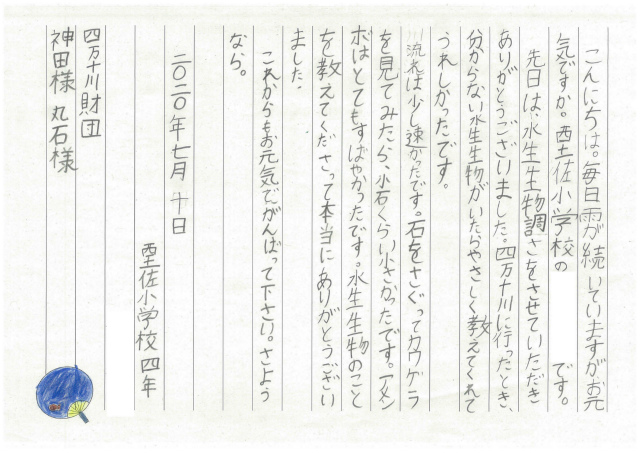 こんにちは。毎日雨が続いていますがお元
気ですか。西土佐小学校の です。
先日は、水生生物調さをさせていただき
ありがとうございました。四万十川に行ったとき、
分からない水生生物がいたらやさしく教えてくれて
うれしかったです。
川流れは少し速かったです。石をさぐってカワゲラ
を見てみたら、小石くらい小さかったです。アメン
ボはとてもすばやかったです。水生生物のこと
を教えてくださって本当にありがとうござい
ました。
これからもお元気でがんばって下さい。さよう
なら。
二〇二〇年七月十日
西土佐小学校四年
四万十川財団
神田様 丸石様